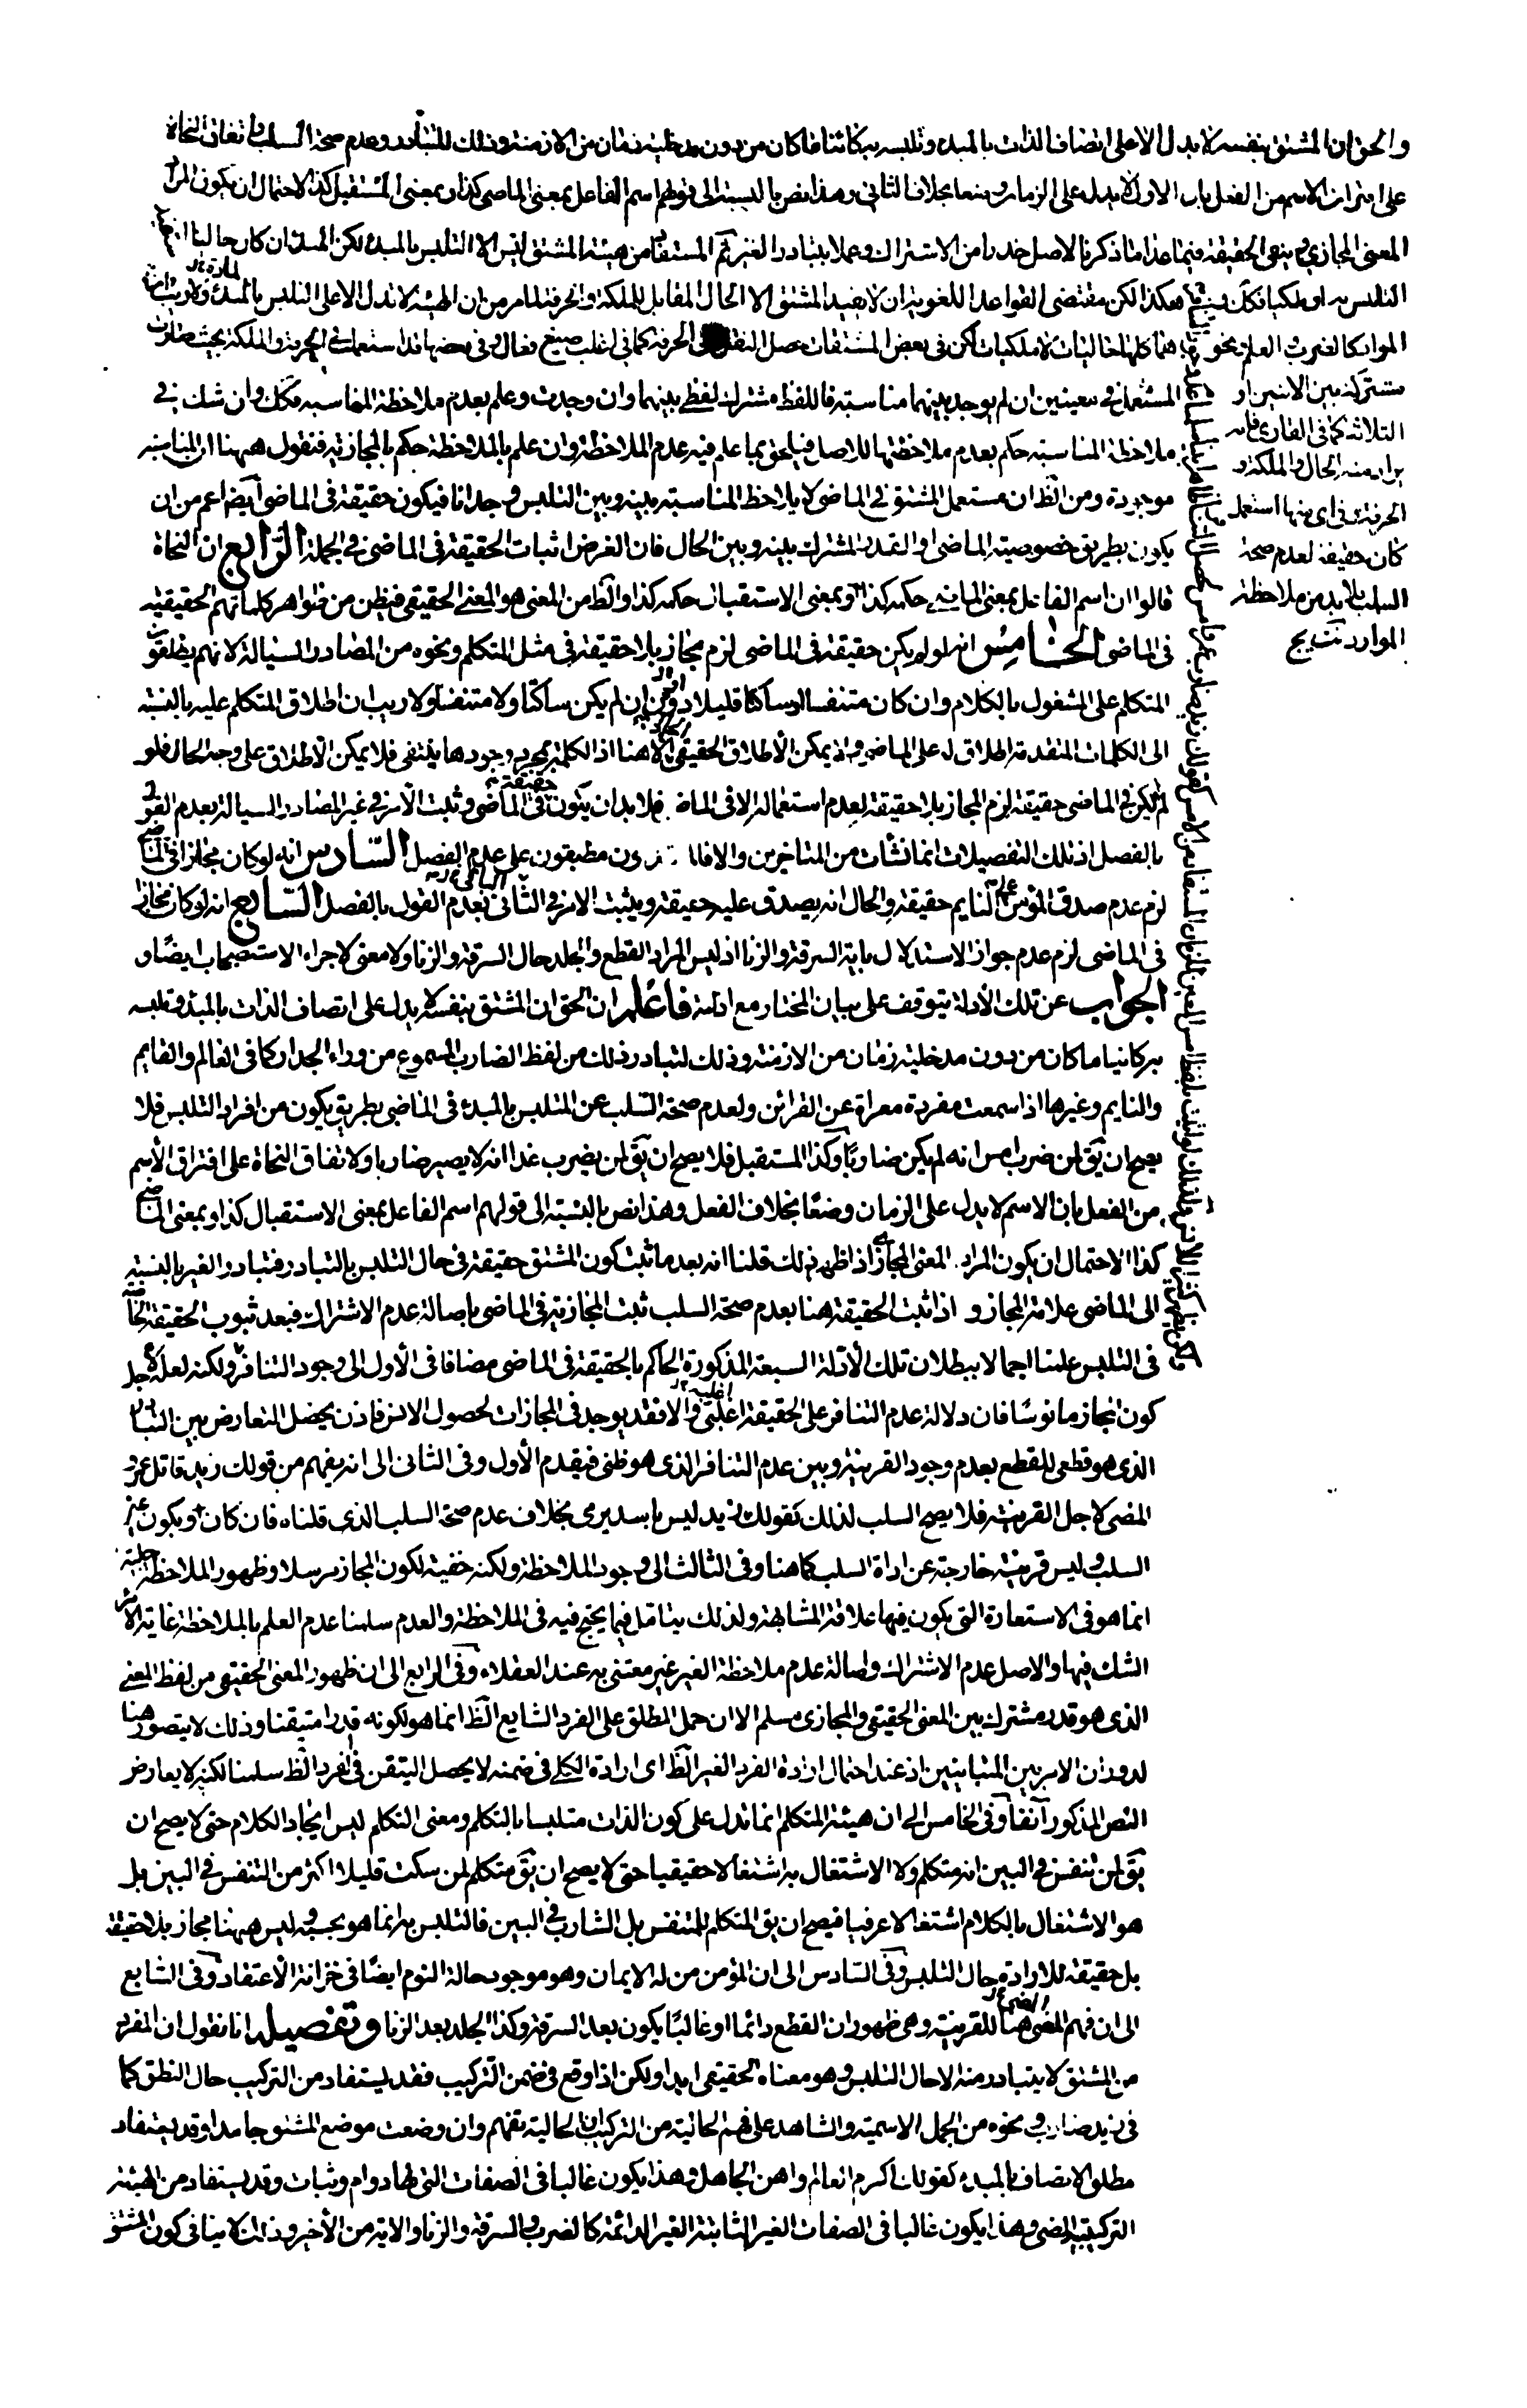 والحق ان المشتق بنفسه لا يدل الا على اتصاف الذات بالمبدء وتلبسه به كائنا ما كان من دون مدخلية زمان من الازمنة وذلك للتبادر وعدم صحة السلب واتفاق النحاة
على امتياز الاسم من الفعل بان الاول لا يدل على الزمان وضعا بخلاف الثاني وهذا نص بالنسبة الى قولهم اسم الفاعل بمعنى الماضي كذا وبمعنى المستقبل كذا لاحتمال ان يكون المراد
المعنى المجازي وينفى الحقيقة فيما عدا ما ذكرنا الاصل حذرا من الاشتراك وعملا بتبادر الغير ثم المستفاد من هيئة المشتق ليس الا التلبس بالمبدء لكن المبدء ان كان حاليا
التلبس به او ملكيا فكك هكذا لكن مقتضى القواعد اللغوية ان لا يفيد المشتق الا الحال المقابل للملكة والحرفة لما مر من ان الهيئة لا تدل الا على التلبس بالمبدء ولا ريب ان
المواد كالضرب العلم ونحوهما كلها حاليات لا ملكيات لكن في بعض المشتقات حصل النقل الى الحرفة كما في اغلب صيغ فعال وفي بعضها قد استعمل في الحرفة والملكة بحيث صارت
مشتركة بين الاثنين او
الثلاثة كما في القاري فانه
يراد منه الحال والملكة و
الحرفة وفي اي منها استعمل
كان حقيقة لعدم صحة
السلب فلا بد من ملاحظة
الموارد
المستعمل في معنيين ان لم يوجد بينهما مناسبة فاللفظ مشترك لفظي بينهما وان وجدت وعلم بعدم ملاحظة المناسبة فكك وان شك في
ملاحظة المناسبة حكم بعدم ملاحظتها للاصل فيلحق بما علم فيه عدم الملاحظة وان علم بالملاحظة حكم بالمجازية فنقول ههنا ان المناسبة
موجودة ومن الظ ان مستعمل المشتق في الماضي لا يلاحظ المناسبة بينه وبين التلبس وجدانا فيكون حقيقة في الماضي ايضا اعم من ان
يكون بطريق خصوصية الماضي او القدر المشترك بينه وبين الحال فان الغرض اثبات الحقيقة في الماضي في الجملة الرابع ان النحاة
قالوا ان اسم الفاعل بمعنى الماضي حكمه كذا وبمعنى الاستقبال حكمه كذا والظ من المعنى هو المعنى الحقيقي فيظن من ظواهر كلماتهم الحقيقية
في الماضي الخامس انه لو لم يكن حقيقة في الماضي لزم مجاز بلا حقيقة في مثل المتكلم ونحوه من المصادر السيالة لانهم يطلقون
المتكلم على المشغول بالكلام وان كان متنفسا او ساكتا قليلا وان لم يكن ساكتا ولا متنفسا ولا ريب ان اطلاق المتكلم عليه بالنسبة
الى الكلمات المتقدمة اطلاق له على الماضي اذ يمكن الاطلاق الحقيقي هنا اذ الكلمة بمجرد وجودها ينتفي فلا يمكن الاطلاق على وجه الحال فلو
لم يكن في الماضي حقيقة لزم المجاز بلا حقيقة لعدم استعماله الا في الماضي فلا بد ان يكون في الماضي حقيقة وثبت الامر في غير المصادر السيالة بعدم القول
بالفصل اذ تلك التفصيلات انما نشأت من المتاخرين والا فالاقدمون مطبقون على عدم الفصل السادس انه لو كان مجازا في الماضي
لزم عدم صدق المؤمن على النايم حقيقة والحال انه يصدق عليه حقيقة ويثبت الامر في الثاني بعدم القول بالفصل السابع انه لو كان مجازا
في الماضي لزم عدم جواز الاستدلال باية السرقة والزنا اذ ليس المراد القطع والجلد حال السرقة والزنا ولا معنى لاجراء الاستصحاب ايضا و
الجواب عن تلك الأدلة يتوقف على بيان المختار مع ادلته فاعلم ان الحق ان المشتق بنفسه لا يدل على اتصاف الذات بالمبدء وتلبسه
به كائنا ما كان من دون مدخلية زمان من الازمنة وذلك لتبادر ذلك من لفظ الضارب المسموع من وراء الجدار كما في العالم والقايم
والنايم وغيرها اذا سمعت مفردة معراة عن القرائن ولعدم صحة السلب عن المتلبس بالمبدء في الماضي بطريق يكون من افراد التلبس فلا
يصح ان يق لمن ضرب امس انه لم يكن ضاربا وكذا المستقبل فلا يصح ان يق لمن يضرب غدا انه لا يصير ضاربا ولاتفاق النحاة على افتراق الأسم
من الفعل بان الاسم لا يدل على الزمان وضعا بخلاف الفعل وهذا نص بالنسبة الى قولهم اسم الفاعل بمعنى الاستقبال كذا وبمعنى الماضي
كذا لاحتمال ان يكون المراد المعنى المجازي اذا ظهر ذلك قلنا انه بعد ما ثبت كون المشتق حقيقة في حال التلبس بالتبادر فتبادر الغير بالنسبة
الى الماضي علامة المجاز و اذا ثبت الحقيقة هنا بعدم صحة السلب ثبت المجازية في الماضي باصالة عدم الاشتراك فبعد ثبوت الحقيقة الخاصة
في التلبس علمنا اجمالا ببطلان تلك الأدلة السبعة المذكورة الحاكم بالحقيقة في الماضي مضافا في الأول الى وجود التنافر ولكنه لعله لاجل
كون المجاز مانوسا فان دلالة عدم التنافر على الحقيقة اغلبي والا فقد يوجد في المجازات لحصول الانس فاذن يحصل التعارض بين التبادر
الذي هو قطعي للقطع بعدم وجود القرينة وبين عدم التنافر الذي هو ظني فيقدم الأول وفي الثاني الى انه يفهم من قولك زيد قاتل عمرو
المضي لاجل القرينة فلا يصح السلب لذلك كقولك زيد ليس باسد يرمي بخلاف عدم صحة السلب الذي قلناه فان كان ويكون غير
السلب وليس قرينة خارجة عن اداة السلب كما هنا وفي الثالث الى وجود الملاحظة ولكنه خفية لكون المجاز مرسلا وظهور الملاحظة جلية
انما هو في الاستعارة التي يكون فيها علاقة المشابهة ولذلك يتامل فيما يحتج فيه في الملاحظة والعدم سلمنا عدم العلم بالملاحظة غاية الأمر
الشك فيها والاصل عدم الاشتراك واصالة عدم ملاحظة الغير غير معتنى به عند العقلاء وفي الرابع الى ان ظهور المعنى الحقيقي من لفظ المعنى
الذي هو قدر مشترك بين المعنى الحقيقي والمجازي مسلم الا ان حمل المطلق على الفرد الشايع الظ انما هو لكونه قدرا متيقنا وذلك لا يتصور هنا
لدوران الامر بين المتباينين اذ عند احتمال ارادة الفرد الغير الظ اي ارادة الكلي في ضمنه لا يحصل التيقن في الفرد الظ سلمنا لكنه لا يعارض
النص المذكور آنفا وفي الخامس الى ان هيئة المتكلم انما تدل على كون الذات متلبسا بالتكلم ومعنى التكلم ليس ايجاد الكلام حتى لا يصح ان
يق لمن تنفس في البين انه متكلم ولا الاشتغال به اشتغالا حقيقيا حتى لا يصح ان يق متكلم لمن سكت قليلا اكثر من التنفس في البين بل
هو الاشتغال بالكلام اشتغالا عرفيا فيصح ان يق المتكلم للمتنفس بل الشارب في البين فالتلبس به انما هو بحسبه وليس ههنا مجاز بلا حقيقة
بل حقيقة للارادة حال التلبس وفي السادس الى ان المؤمن من له الايمان وهو موجود حالة النوم ايضا في خزانة الأعتقاد وفي السابع
الى ان فهم المضي هنا للقرينة وهي ظهور ان القطع دائما او غالبا يكون بعد السرقة وكذا الجلد بعد الزنا وتفصيله انا نقول ان المفرد
من المشتق لا يتبادر منه الا حال التلبس وهو معناه الحقيقي ابدا ولكن اذا وقع في ضمن التركيب فقد يستفاد من التركيب حال النطق كما
في زيد ضارب ونحوه من الجمل الاسمية والشاهد على فهم الحالية من التركيب ان الحالية تفهم وان وضعت موضع المشتق جامدا وقد يستفاد
مطلق الاتصاف بالمبدء كقولك اكرم العالم واهن الجاهل وهذا يكون غالبا في الصفات التي لها دوام وثبات وقد يستفاد من الهيئة
التركيبية المضي وهذا يكون غالبا في الصفات الغير الثابتة الغير الدائمة كالضرب والسرقة والزنا والاية من الأخير وذلك لا ينافي كون المشتق